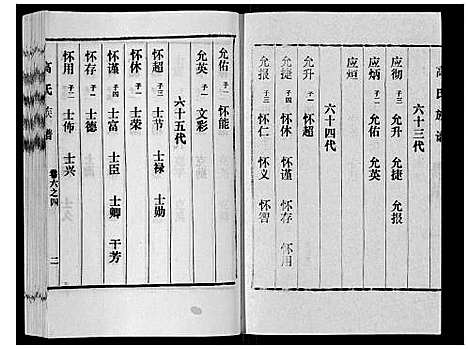 高氏族谱
六十三代
应彻 子三 允升 允捷 允报
应炳 子二 允佑 允英
应烜
六十四代
允升 子一 怀超
允捷 子四 怀休 怀谨 怀存 怀用
允报 子三 怀仁 怀义 怀智
允佑 子一 怀能
允英 子一 文彩
六十五代
怀超 子三 士节 士禄 士勋
怀休 子一 士荣
怀谨 子四 士富 士臣 士卿 干芳
怀存 子一 士德
怀用 子二 士佈 士兴
高氏族谱
卷六之四
二